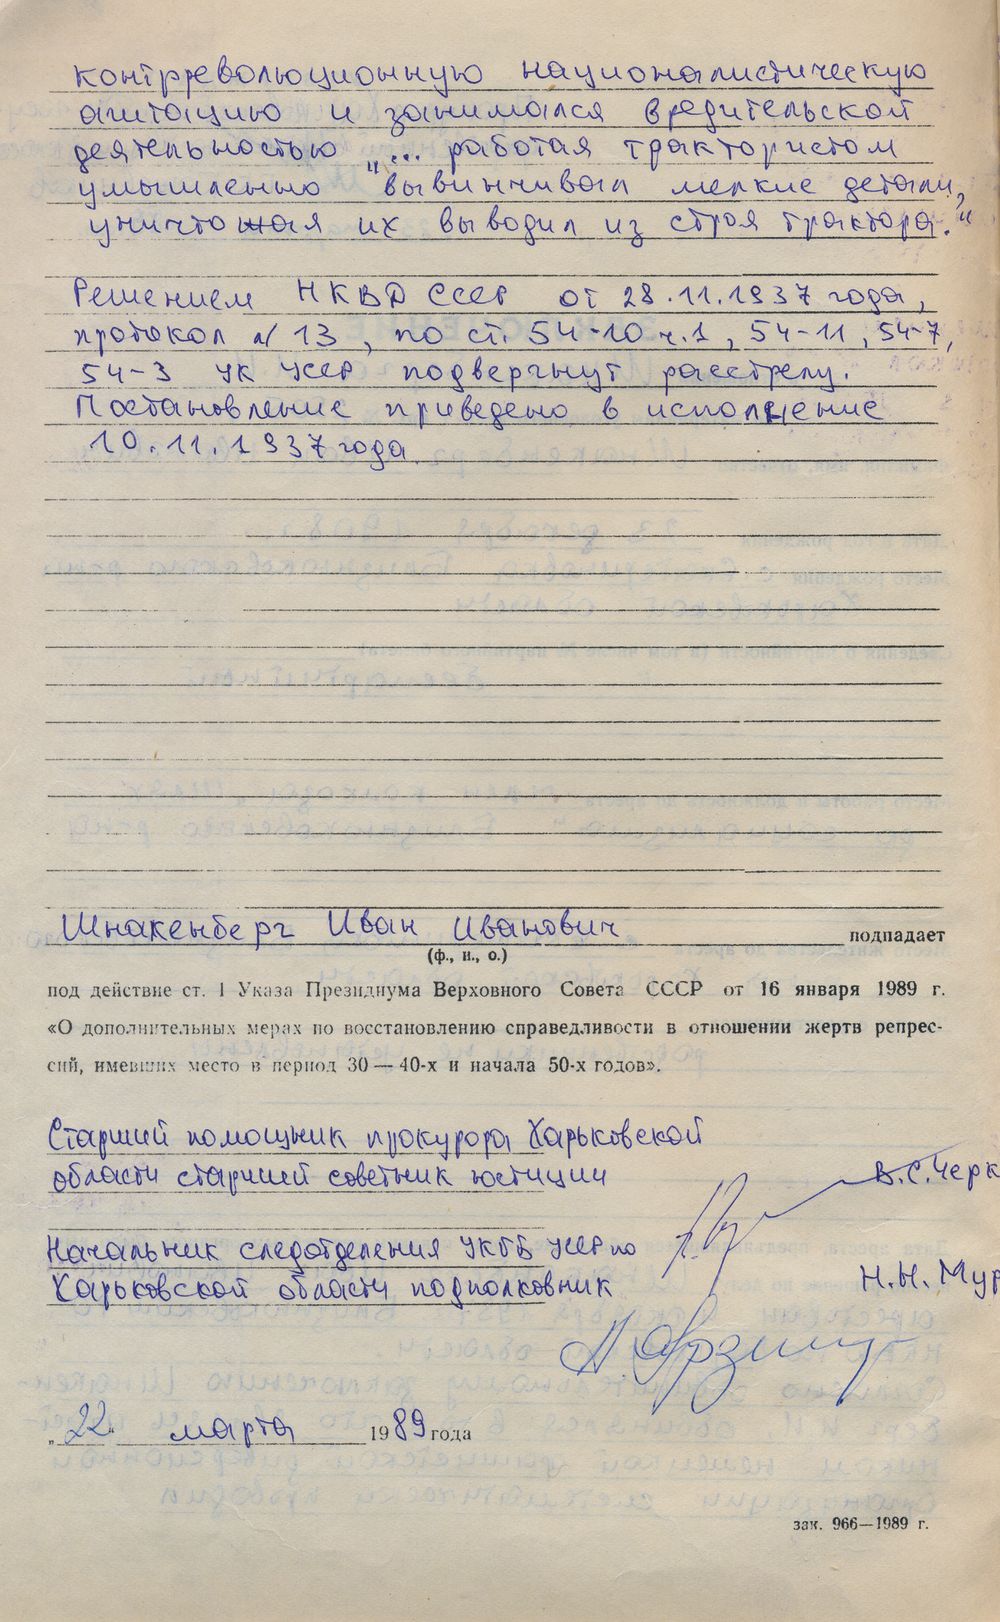 контрреволюционную националистическую
агитацию и занимался вредительской
деятельностью „... работая трактористом
умышленно вывинчивал мелкие детали,
уничтожая их выводил из строя трактора."
Решением НКВД СССР от 28.11.1937 года,
протокол № 13, по ст. 54-10 ч.1, 54-11, 54-7,
54-3 УК УССР подвергнут расстрелу.
Постановление приведено в исполнение
10.11.1937 года.
Шнакенберг Иван Иванович подпадает
(ф., и., о.)
под действие ст. 1 Указа Президиума Верховного Совета СССР от 16 января 1989 г.
«О дополнительных мерах по восстановлению справедливости в отношении жертв репрес-
сий, имевших место в период 30—40-х и начала 50-х годов».
Старший помощник прокурора Харьковской
области старший советник юстиции В.С.Черк
Начальник следотделения УКГБ УССР по
Харьковской области подполковник Н.Н.Мур
„22" марта 1989 года
зак. 966—1989 г.